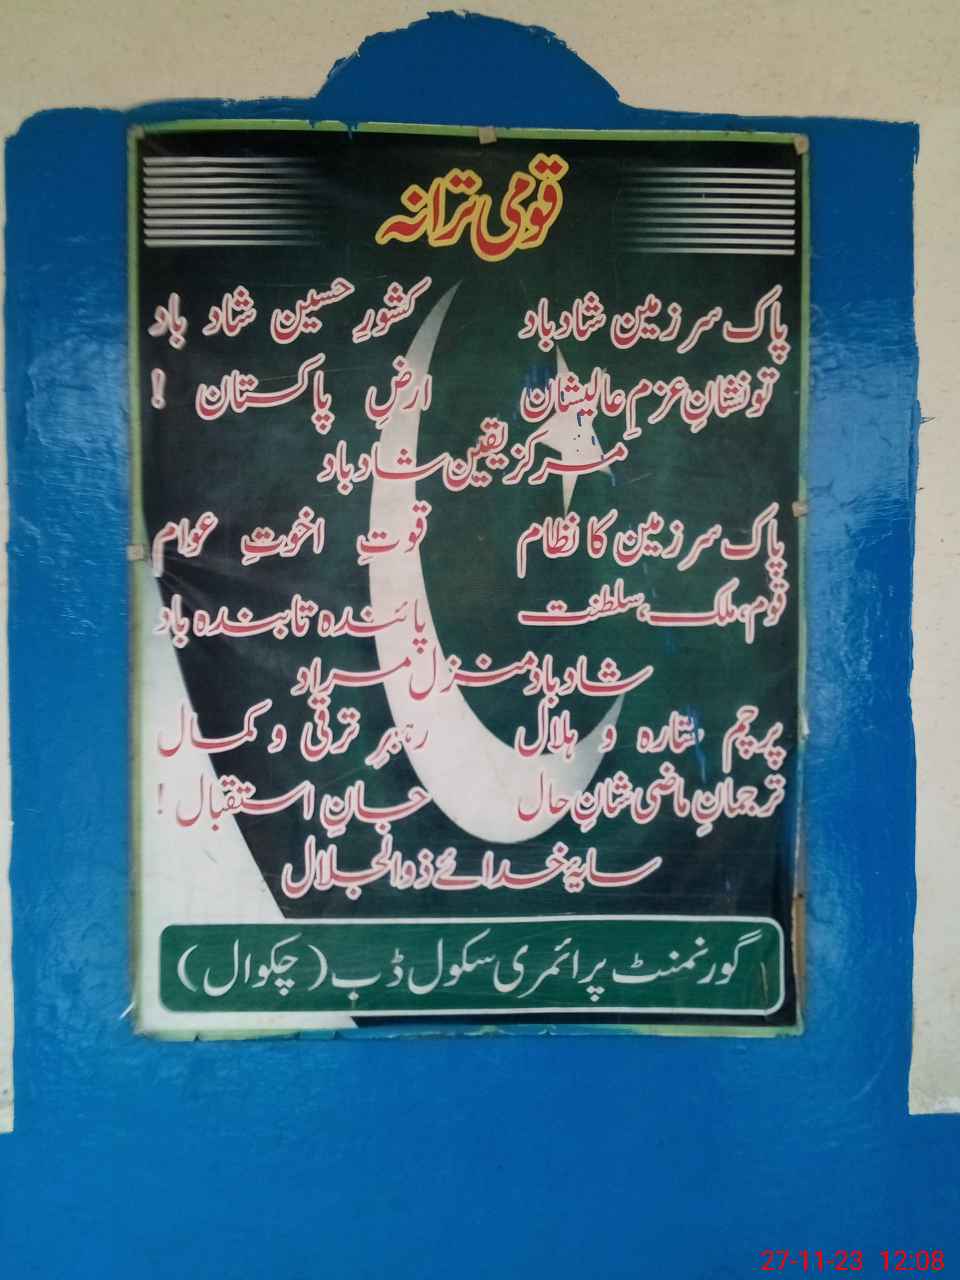 قومی ترانہ
پاک سرزمین شادباد کشورِ حسین شاد باد
تونشانِ عزمِ عالیشان ارضِ پاکستان !
مرکزیقین شادباد
پاک سرزمین کا نظام قوتِ اخوتِ عوام
قوم، ملک، سلطنت پائندہ تابندہ باد
شادباد منزل مراد
پرچم ستارہ و ہلال رہبرِ ترقی و کمال
ترجمانِ ماضی شانِ حال جانِ استقبال !
سایۂ خدائے ذوالجلال
گورنمنٹ پرائمری سکول ڈب (چکوال)
27-11-23 12:08